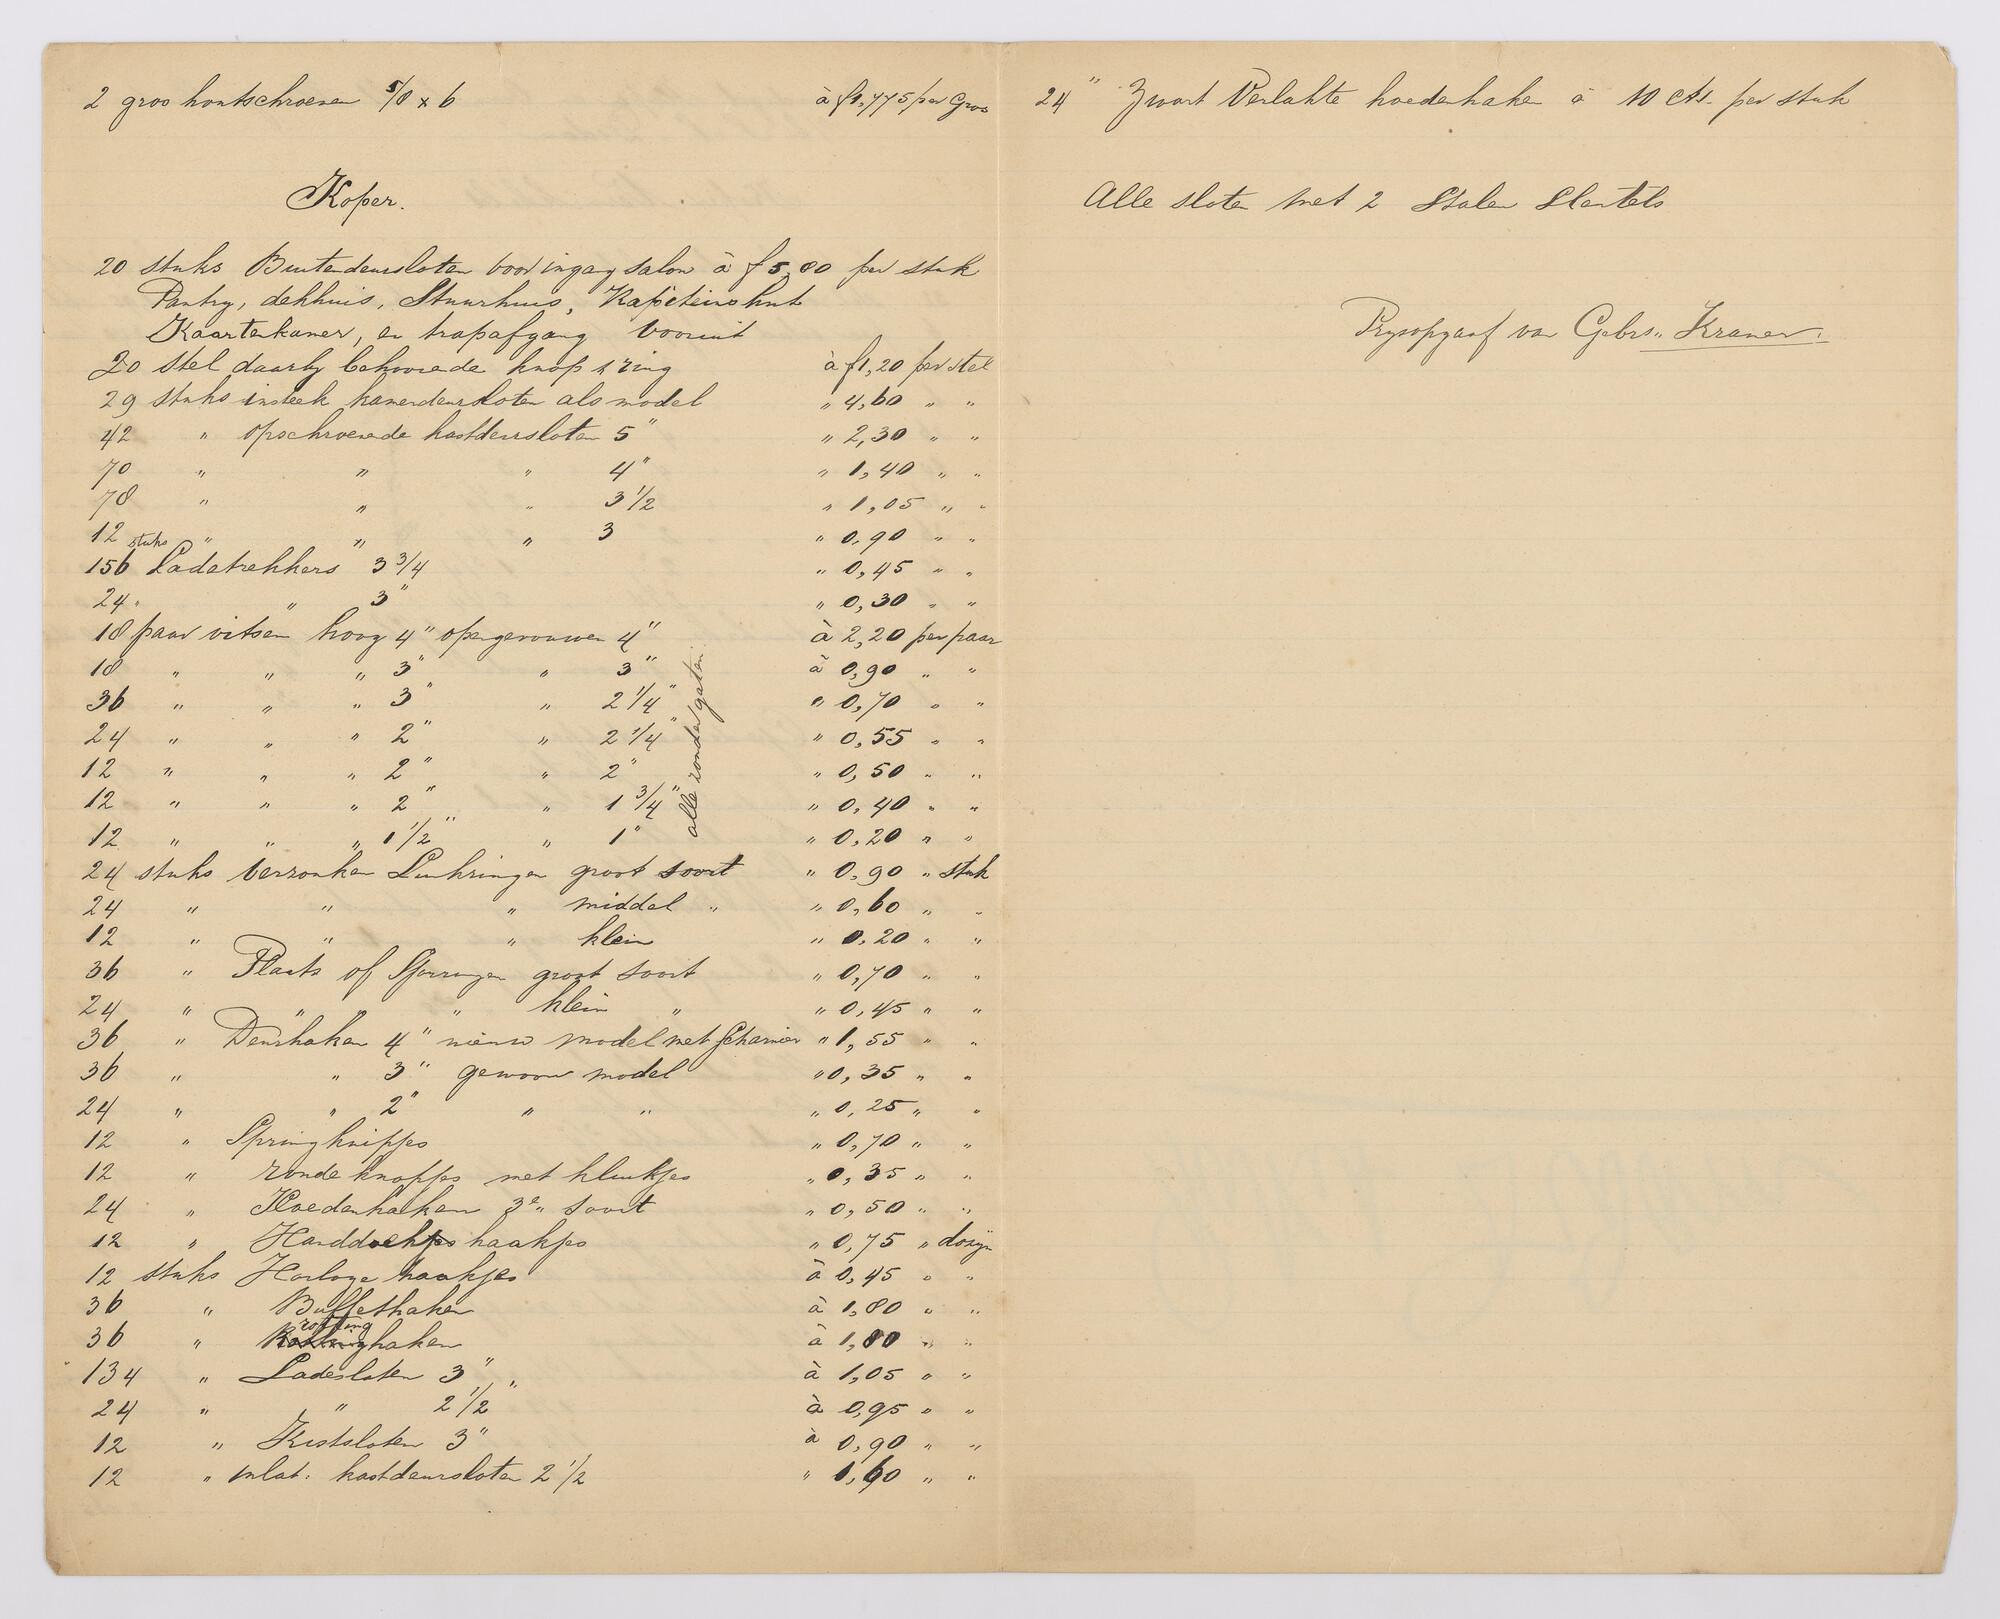 2 gros houtschroeven 5/8 x 6 à f1,775 per Gros
Koper.
20 stuks Buitendeursloten voor ingang salon à f 5,80 per stuk
Pantry, dekhuis, Stuurhuis, Kapiteinshut
Kaartenkamer, en trapafgang vooruit
20 stel daarby behoorende knop & ring à f1,20 per stel
29 stuks insteek kamerdeursloten als model " 4,60 " "
42 " opschroevende kastdeursloten 5" " 2,30 " "
70 " " " 4" " 1,40 " "
78 " " " 3 1/2 " 1,05 " "
12 " " " 3 " 0,90 " "
156 stuks Ladetrekkers 3 3/4 " 0,45 " "
24 " " 3" " 0,30 " "
18 paar vitsen hoog 4" opengevouwen 4" à 2,20 per paar
18 " " " 3" " 3" à 0,90 " "
36 " " " 3" " 2 1/4" " 0,70 " "
24 " " " 2" " 2 1/4" " 0,55 " "
12 " " " 2" " 2" " 0,50 " "
12 " " " 2" " 1 3/4" " 0,40 " "
12 " " " 1 1/2" " 1" " 0,20 " "
alle zonder gaten.
24 stuks verzonken Luikringen groot soort " 0,90 " stuk
24 " " " middel " " 0,60 " "
12 " " " klein " 0,20 " "
36 " Plaats of Sporringen groot soort " 0,70 " "
24 " " " " klein " " 0,45 " "
36 " Deurhaken 4" nieuw model met Scharnier " 1,55 " "
36 " " 3" gewoon model " 0,35 " "
24 " " 2" " " " 0,25 " "
12 " Springknipjes " 0,70 " "
12 " ronde knopjes met klinkjes " 0,35 " "
24 " Hoedenhaken 3e soort " 0,50 " "
12 " Handdoekjes haakjes " 0,75 " dozyn
12 stuks Horloge haakjes à 0,45 " "
36 " Buffethaken à 1,80 " "
36 " rottinghaken à 1,80 " "
134 " Ladesloten 3" " à 1,05 " "
24 " " 2 1/2 à 0,95 " "
12 " Kistsloten 3" à 0,90 " "
12 " inlat. kastdeursloten 2 1/2 " 1,60 " "
24 " Zwart Verlakte hoedenhaken à 10 cts. per stuk
Alle sloten met 2 Stalen Sleutels
Prysopgaaf van Gebrs. Kramer.